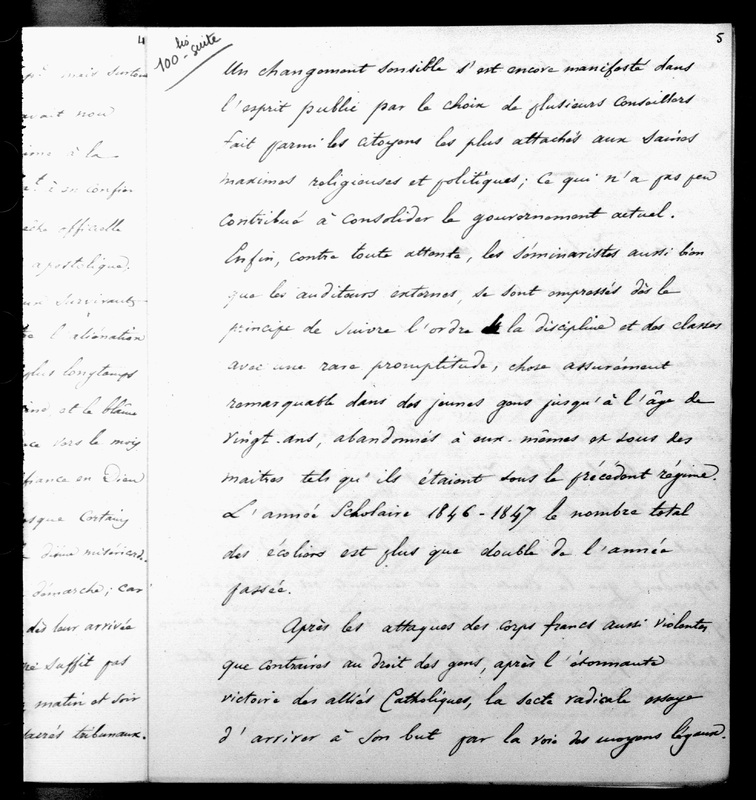 4
pé mais surtout
avait nou
à la
à son confin
officielle
apostolique.
survivants
l'aliénation
plus longtemps
et le blâme
ce dans le mois
fiance en Dieu
esque certains
divine miséricord.
démarche; car
dès leur arrivée
suffit pas
matin et soir
sacrés tribunaux.
100 bis - suite
5
Un changement sensible s'est encore manifesté dans
l'esprit public par le choix de plusieurs conseillers
fait parmi les citoyens les plus attachés aux saines
maximes religieuses et politiques; ce qui n'a pas peu
contribué à consolider le gouvernement actuel.
Enfin, contre toute attente, les séminaristes aussi bien
que les auditeurs externes, se sont empressés dès le
principe de suivre l'ordre de la discipline et des classes
avec une rare promptitude, chose assurément
remarquable dans des jeunes gens jusqu'à l'âge de
vingt-ans, abandonnés à eux-mêmes et sous des
maitres tels qu'ils étaient sous le précédent régime.
L'année Scholaire 1846-1847 le nombre total
des écoliers est plus que double de l'année
passée.
Après les attaques des corps francs aussi violentes
que contraires au droit des gens, après l'étonnante
victoire des alliés Catholiques, la secte radicale essaye
d'arriver à son but par la voie des moyens légaux.